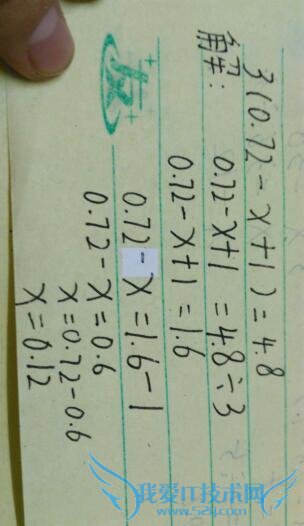 3(0.72-x+1)=4.8
解：
0.72-x+1=4.8÷3
0.72-x+1=1.6
0.72-x=1.6-1
0.72-x=0.6
x=0.72-0.6
x=0.12
我爱IT技术网